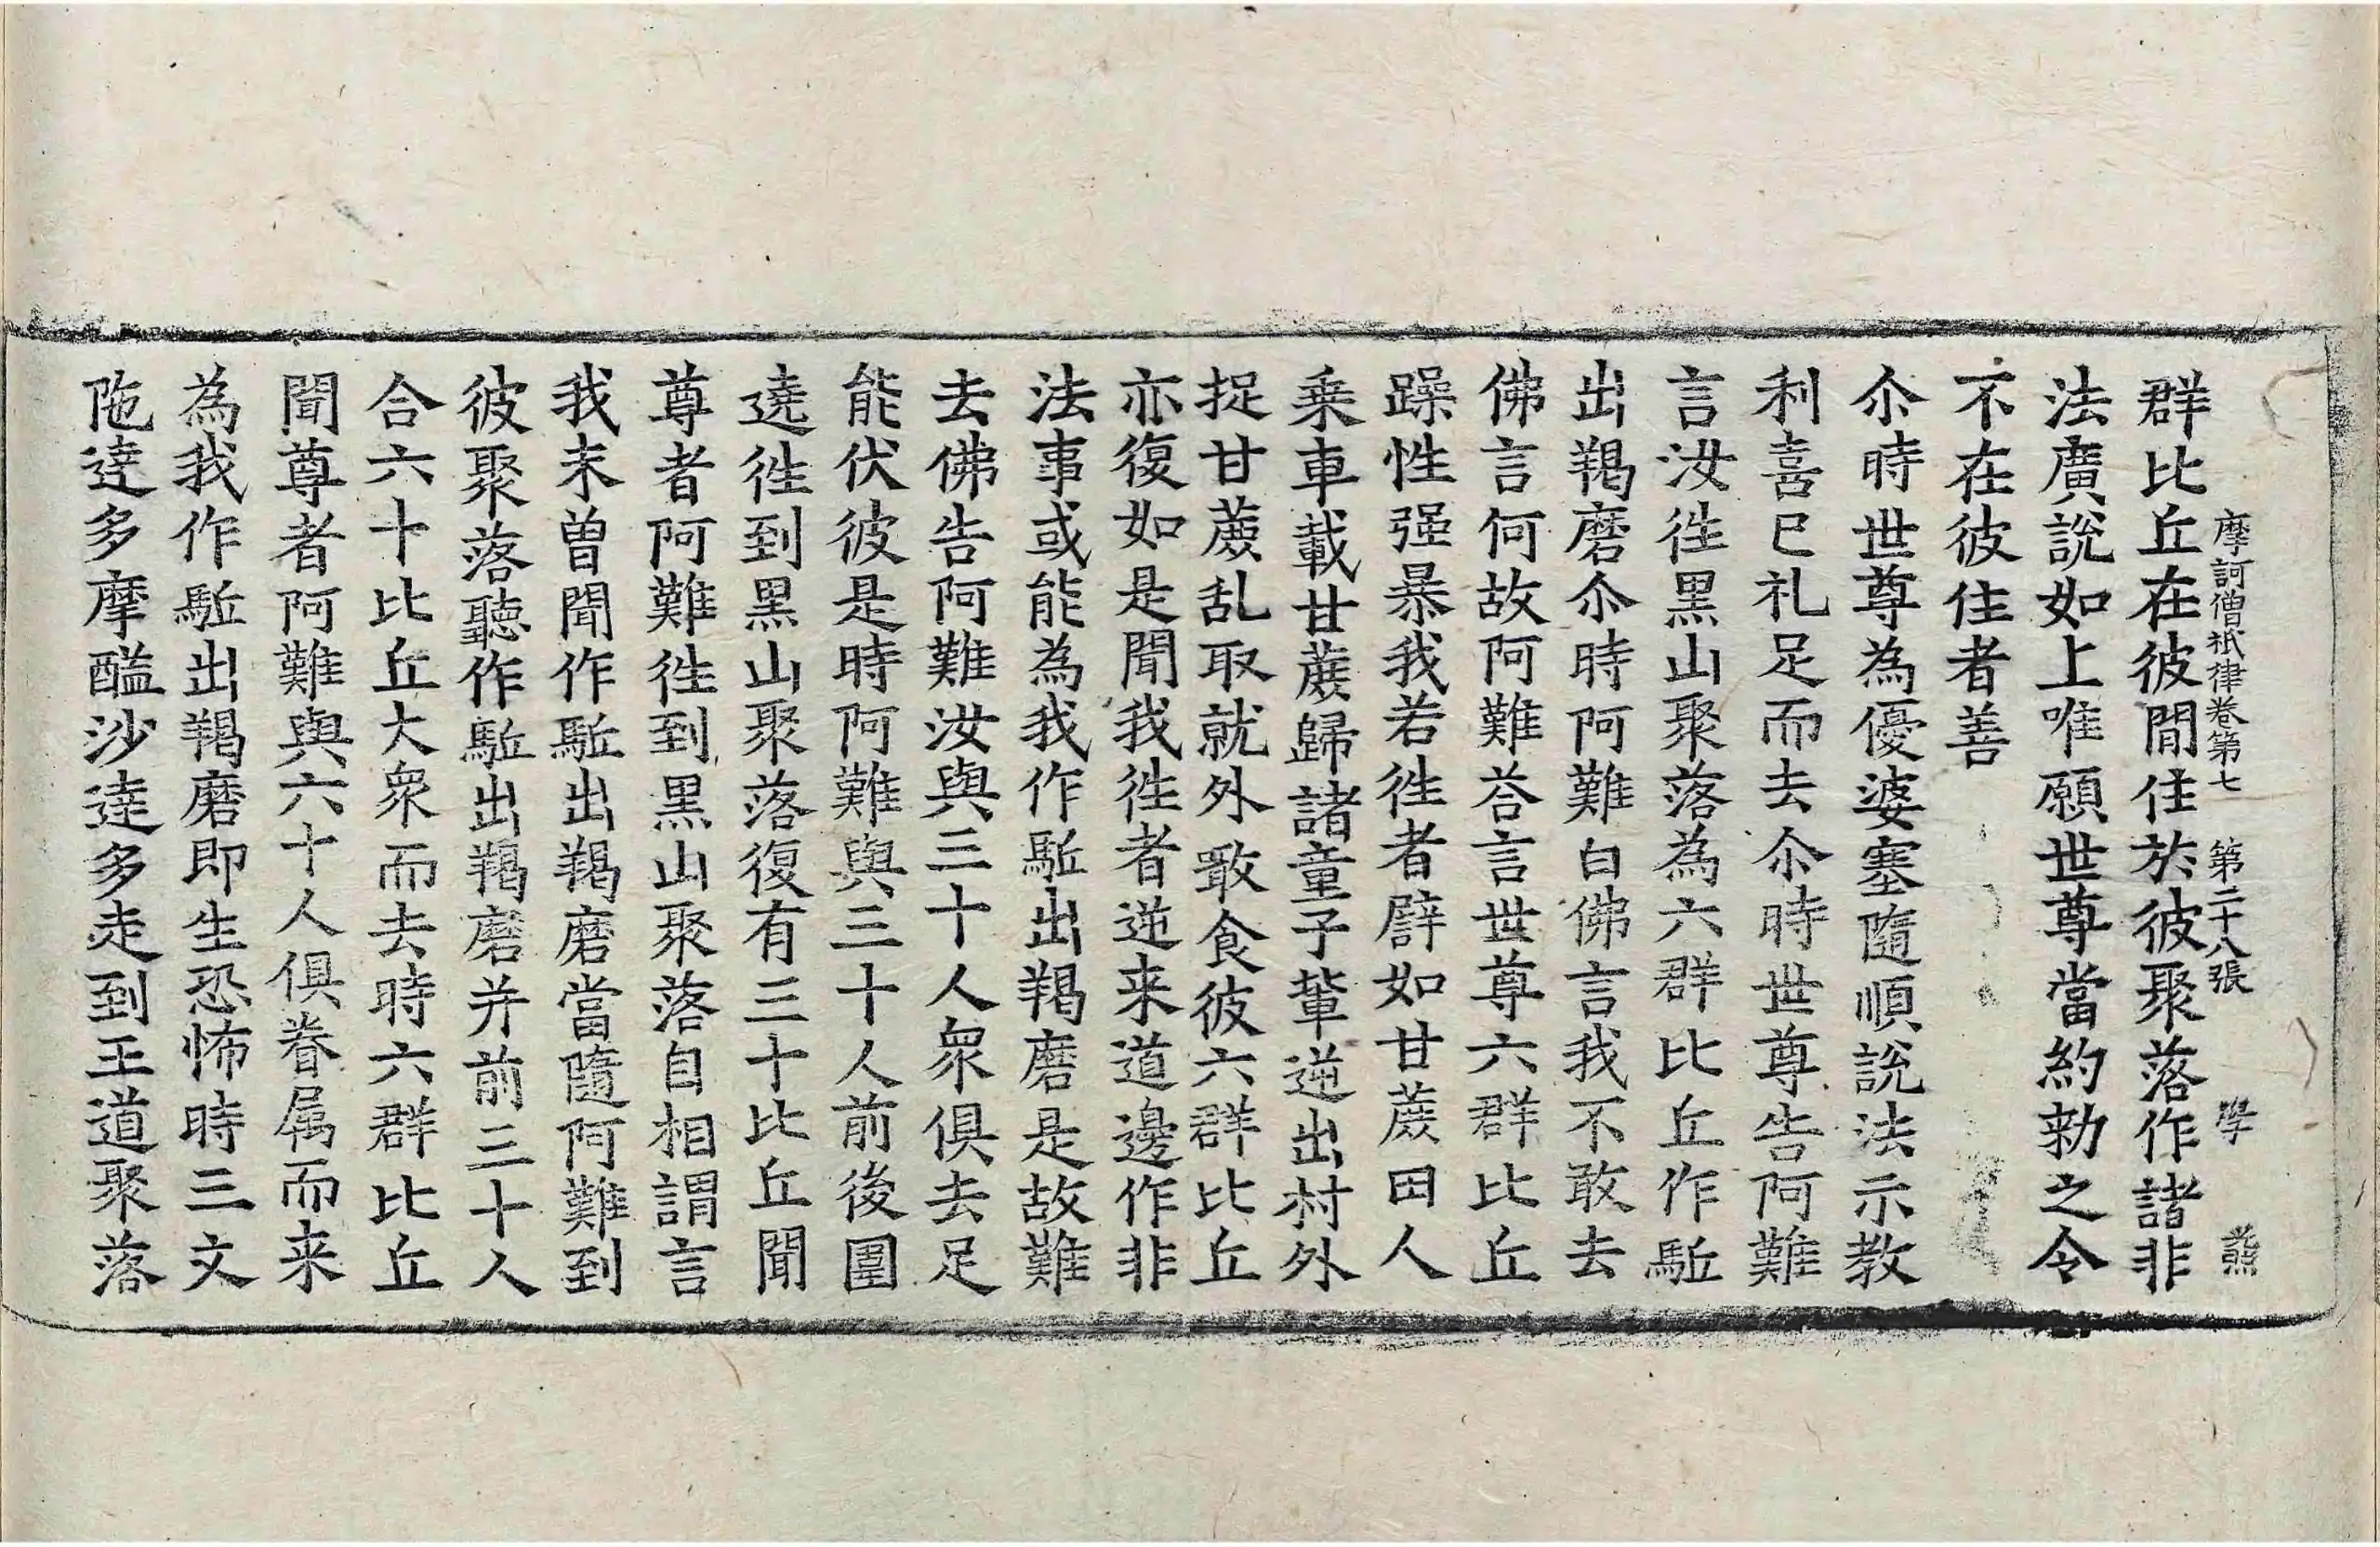 摩訶僧祇律卷第七 第二十八張 學
群比丘在彼間住於彼聚落作諸非
法廣說如上唯願世尊當約勑之令
不在彼住者善
尒時世尊為優婆塞隨順說法示教
利喜已礼足而去尒時世尊告阿難
言汝徃黑山聚落為六群比丘作駈
出羯磨尒時阿難白佛言我不敢去
佛言何故阿難荅言世尊六群比丘
躁性强暴我若徃者譬如甘蔗田人
乗車載甘蔗歸諸童子輩逆出村外
捉甘蔗乱取就外噉食彼六群比丘
亦復如是聞我徃者逆来道邊作非
法事或能為我作駈出羯磨是故難
去佛告阿難汝與三十人衆俱去足
能伏彼是時阿難與三十人前後圍
遶徃到黑山聚落復有三十比丘聞
尊者阿難徃到黑山聚落自相謂言
我未曾聞作駈出羯磨當隨阿難到
彼聚落聽作駈出羯磨并前三十人
合六十比丘大衆而去時六群比丘
聞尊者阿難與六十人俱眷属而来
為我作駈出羯磨即生恐怖時三文
陁達多摩醯沙達多走到王道聚落